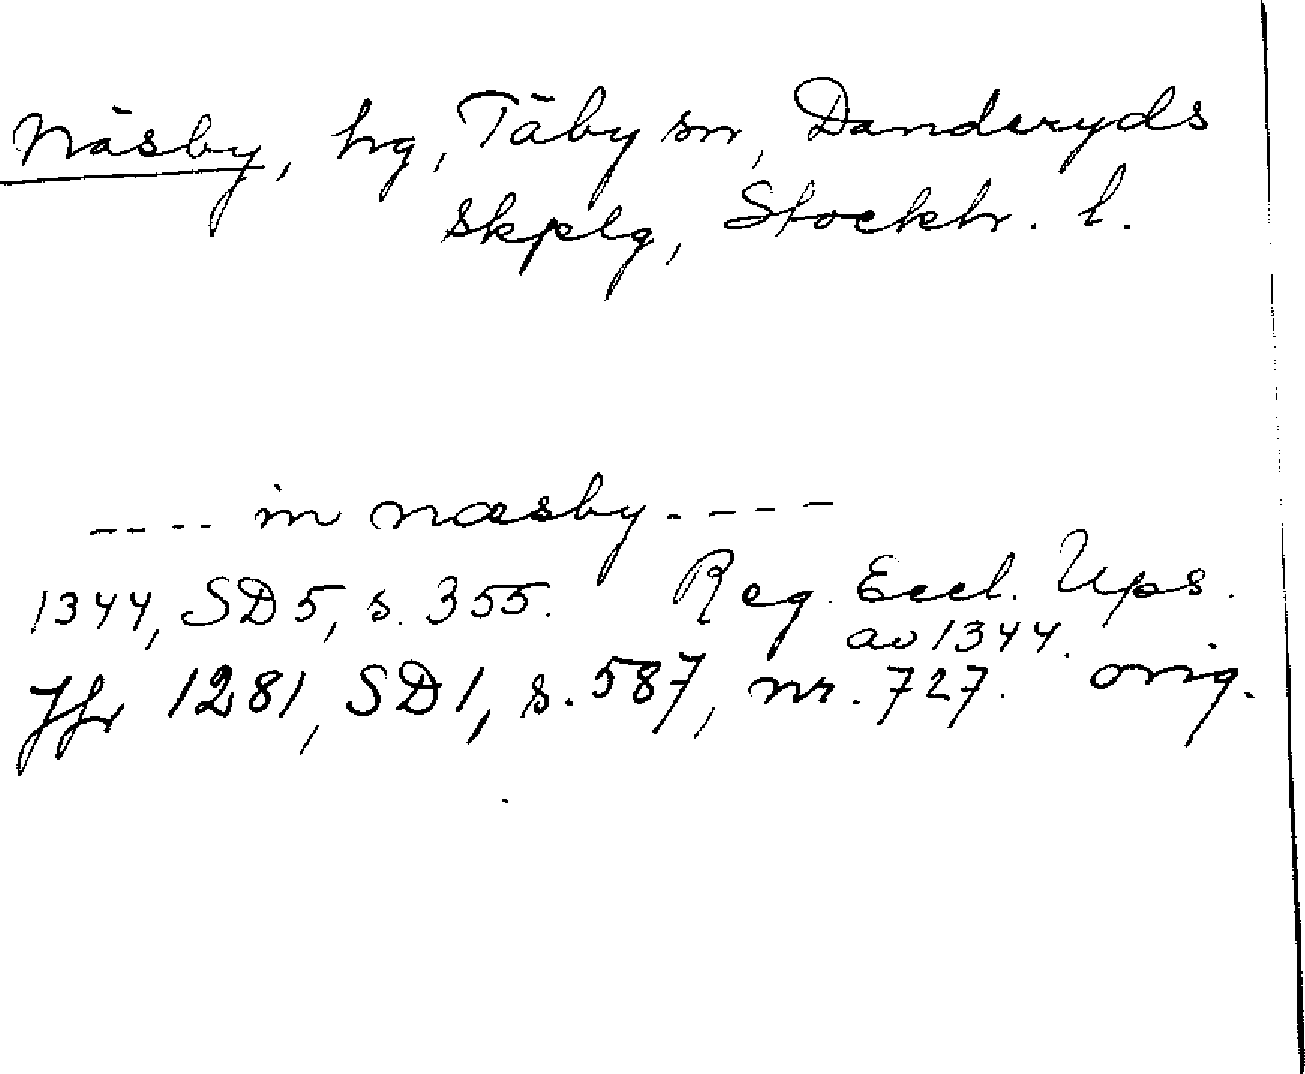 Näsby, hg, Täby sn, Danderyds
skplg, Stockh. l.
---- in næsby ----
1344, SD5, s. 355. Reg. Eccl. Ups.
av 1344.
Jfr 1281, SD1, s. 587, nr. 727. orig.